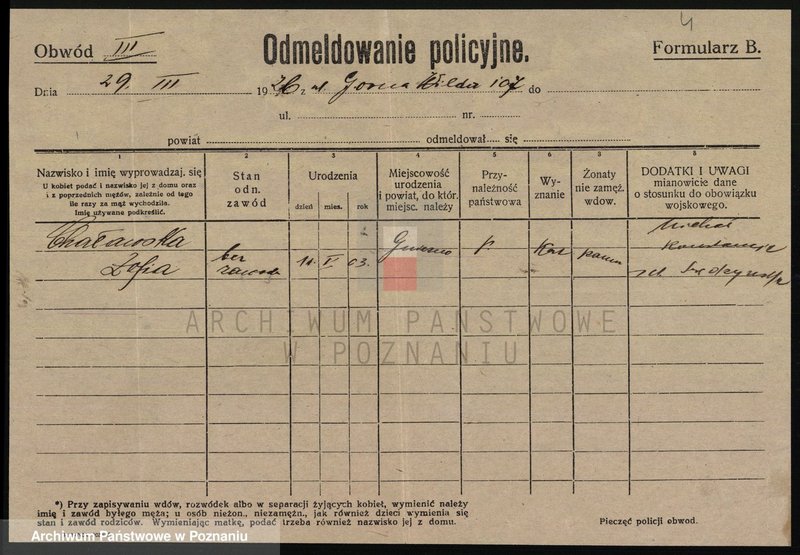 4
Obwód III
Odmeldowanie policyjne.
Formularz B.
Dnia 29. III 1926 z ul Górna Wilda 107 do
ul. nr.
powiat odmeldował się
1 2 3 4 5 6 7 8
Nazwisko i imię wyprowadzaj. się
U kobiet podać i nazwisko jej z domu oraz
i z poprzednich mężów, zależnie od tego
ile razy za mąż wychodziła.
Imię używane podkreślić.
Stan
odn.
zawód
Urodzenia
dzień mies. rok
Miejscowość
urodzenia
i powiat, do któr.
miejsc. należy
Przy-
należność
państwowa
Wy-
znanie
Żonaty
nie zamęż.
wdow.
DODATKI I UWAGI
mianowicie dane
o stosunku do obowiązku
wojskowego.
Chaławska
Zofia
bez
zawodu
V 03.
Gniezno
p
Kat
panna
Michał
Konstancja
ARCHIWUM PAŃSTWOWE
W POZNANIU
*) Przy zapisywaniu wdów, rozwódek albo w separacji żyjących kobiet, wymienić należy
imię i zawód byłego męża; u osób nieżon., niezamężn., jak również dzieci wymienia się
stan i zawód rodziców. Wymieniając matkę, podać trzeba również nazwisko jej z domu.
Pieczęć policji obwod.
Archiwum Państwowe w Poznaniu